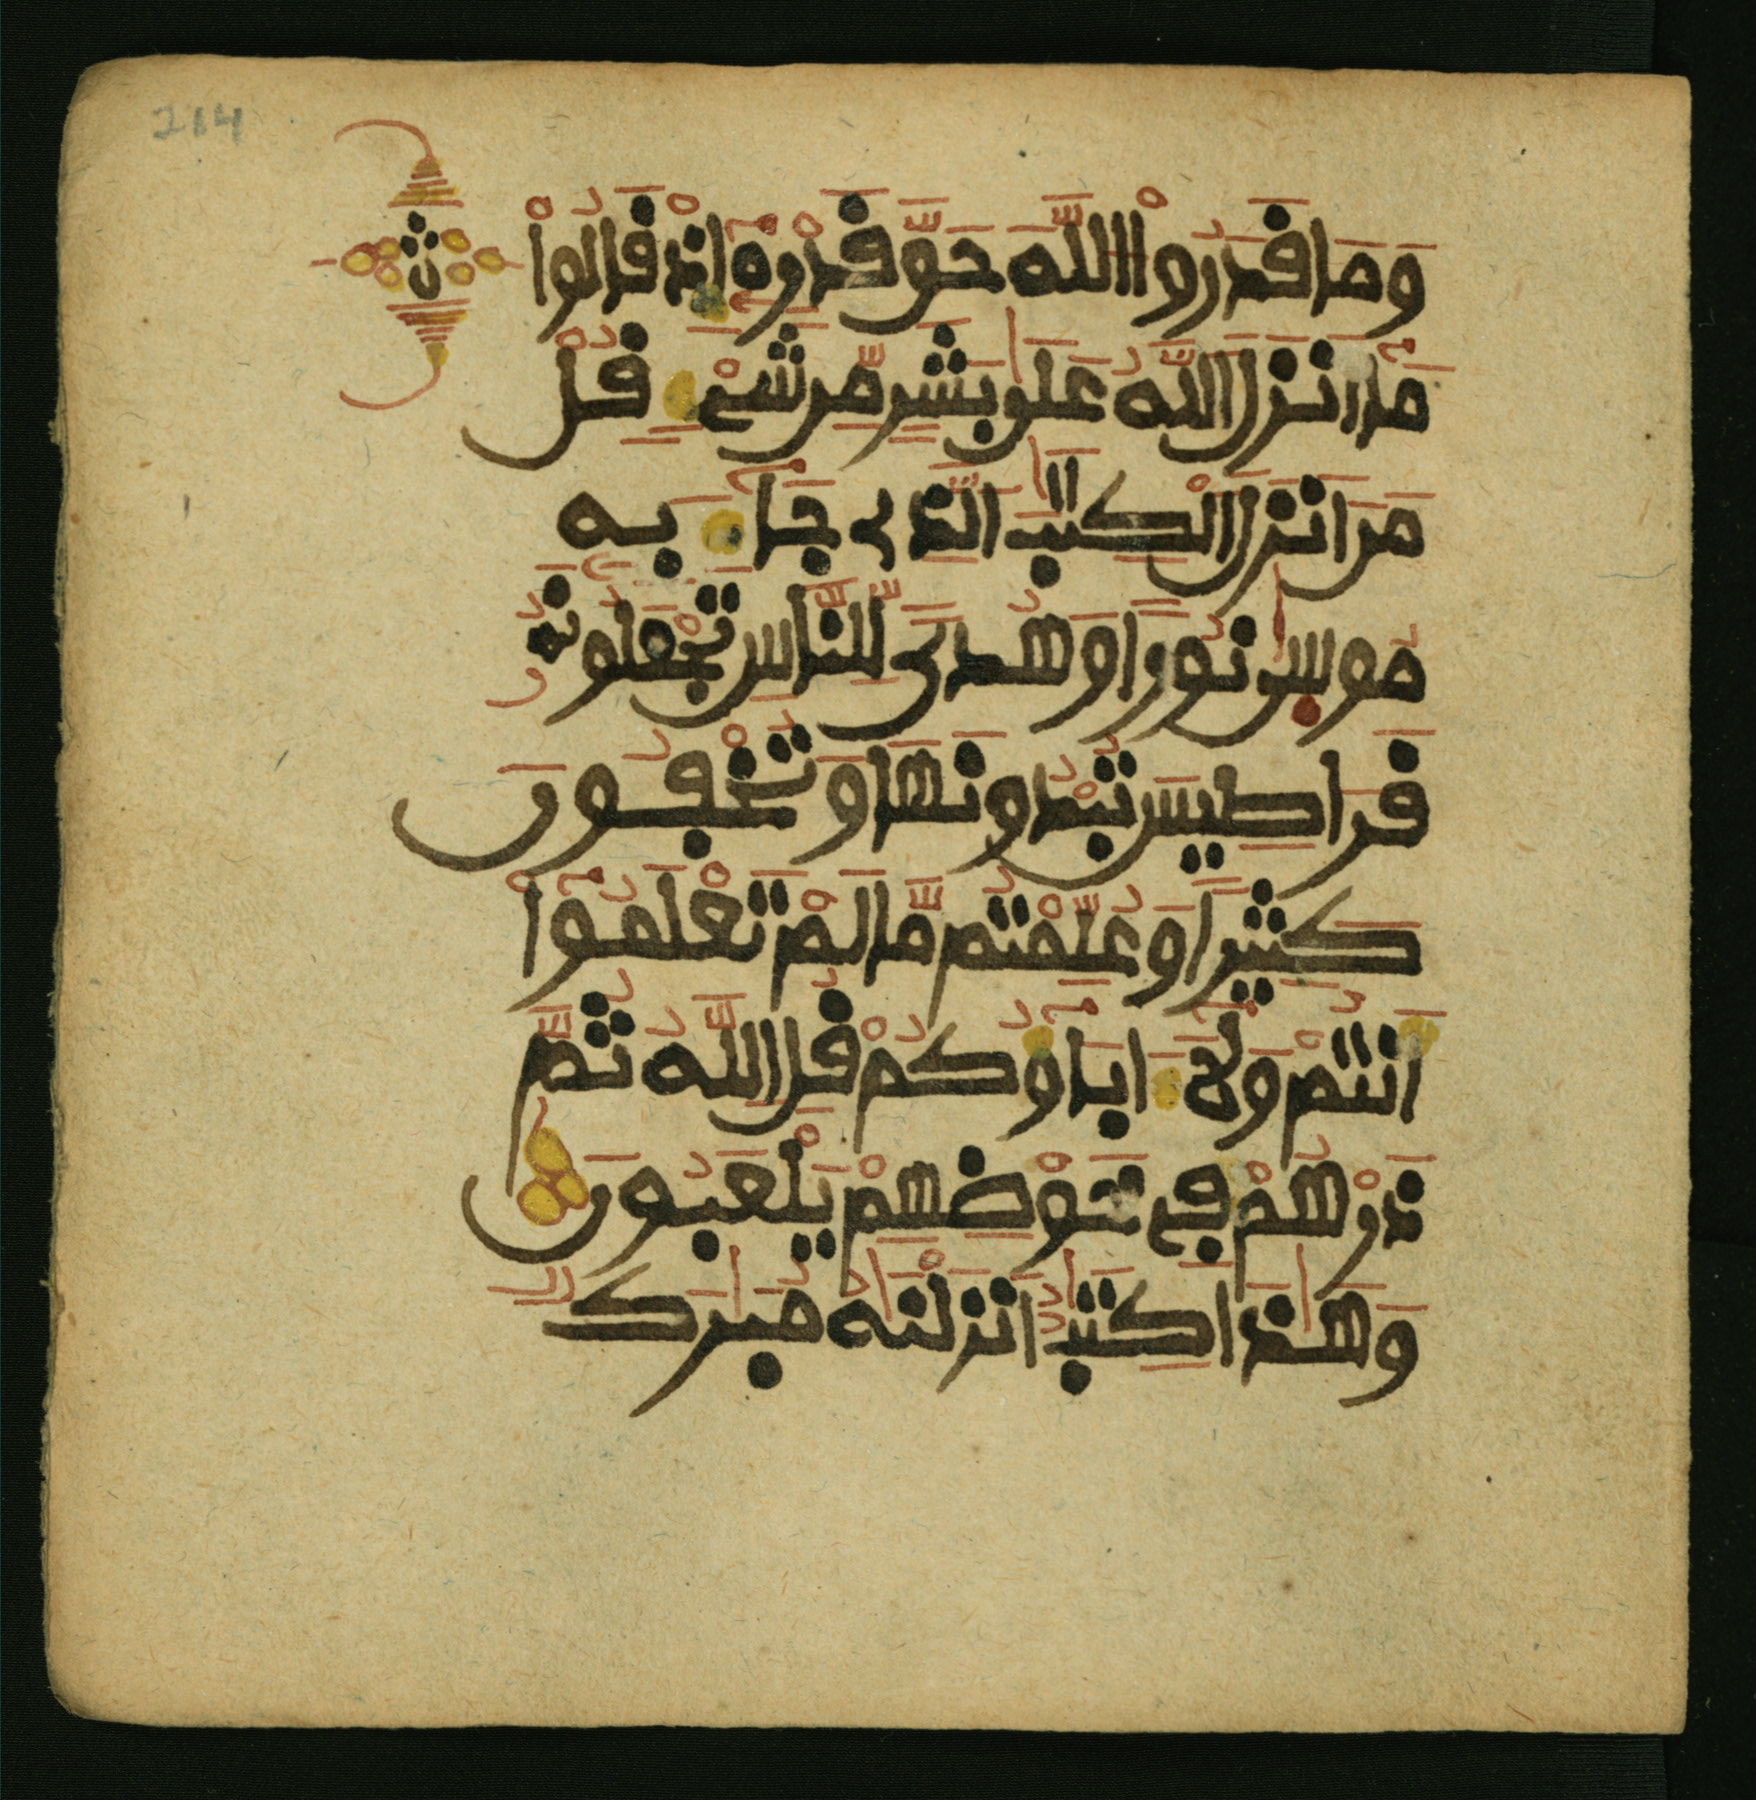 214
ث
وَمَا قَدَرُواْ اللَّهَ حَقَّ قَدْرِهِ إِذْ قَالُواْ
مَا أَنزَلَ اللَّهُ عَلَىٰ بَشَرٍ مِّن شَيْءٍ قُلْ
مَنْ أَنزَلَ الْكِتَٰبَ الَّذِي جَاءَ بِهِ
مُوسَىٰ نُورًا وَهُدًى لِّلنَّاسِ تَجْعَلُونَهُ
قَرَاطِيسَ تُبْدُونَهَا وَتُخْفُونَ
كَثِيرًا وَعُلِّمْتُم مَّا لَمْ تَعْلَمُواْ
أَنتُمْ وَلَا ءَابَاؤُكُمْ قُلِ اللَّهُ ثُمَّ
ذَرْهُمْ فِي خَوْضِهِمْ يَلْعَبُونَ
وَهَٰذَا كِتَٰبٌ أَنزَلْنَٰهُ مُبَٰرَكٌ